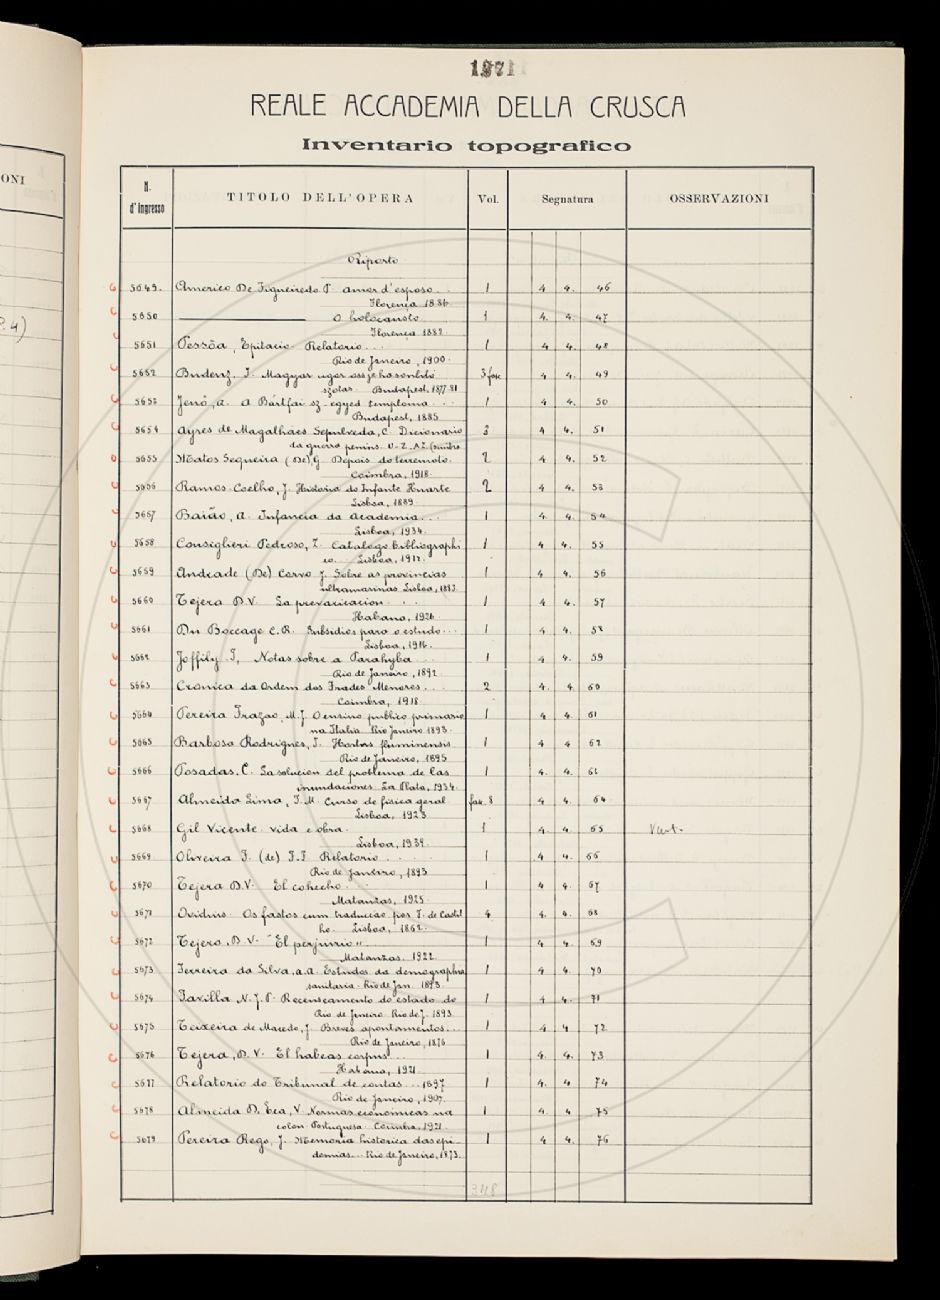 ONI
P.4)
1971
REALE ACCADEMIA DELLA CRUSCA
Inventario topografico
N. d'ingresso TITOLO DELL'OPERA Vol. Segnatura OSSERVAZIONI
Riporto
5649. Americo De Figueiredo P. Amor d'esposo 1 4 4. 46
Florença 1886
5650 ——— O holocausto 1 4. 4. 47
Florença 1882
5651 Pessôa, Epitacio Relatorio... 1 4 4. 48
Rio de Janeiro, 1900.
5652 Budenz, J. Magyar ugor 3 fasc 4 4. 49
szotas. Budapest, 1877-81
5653 Jenö, A. A Bártfai sz-egyed temploma... 1 4 4. 50
Budapest, 1885
5654 Ayres de Magalhães Sepulveda, C. Dicionario 3 4 4. 51
da guerra penins. V-Z. A-I.
5655 Matos Sequeira (De), G. Depois do terremoto. 2 4 4. 52
Coimbra, 1918.
5656 Ramos-Coelho, J. Historia do Infante Duarte 2 4 4. 53
Lisboa, 1889
5657 Baião, A. Infancia da Academia... 1 4. 4. 54
Lisboa, 1934.
5658 Consiglieri Pedroso, Z. Catalogo bibliographi 1 4 4. 55
co... Lisboa, 1912.
5659 Andrade (De) Corvo J. Sobre as provincias 1 4 4. 56
ultramarinas Lisboa, 1883.
5660 Tejera D.V. La prevaricacion... 1 4 4. 57
Habana, 1926
5661 Du Boccage C.R. Subsidios para o estudo... 1 4 4. 58
Lisboa, 1916.
5662 Joffily I, Notas sobre a Parahyba 1 4 4. 59
Rio de Janeiro, 1892
5663 Cronica da Ordem dos Frades Menores... 2 4. 4. 60
Coimbra, 1918.
5664 Pereira Frazao, M.J. O ensino publico primario 1 4 4. 61
na Italia Rio Janeiro 1893.
5665 Barbosa Rodrigues, J. Hortus fluminensis 1 4 4 62
Rio de Janeiro, 1895
5666 Posadas, C. La solucion del problema de las 1 4. 4. 62
inundaciones La Plata, 1934.
5667 Almeida Lima, J.M. Curso de fisica geral fasc. 8 4 4. 64
Lisboa, 1923
5668 Gil Vicente. vida e obra. 1 4. 4. 65
Lisboa, 1939.
5669 Oliveira J. (de) J.J. Relatorio 1 4 4. 66
Rio de Janeiro, 1893
5670 Tejera D.V. El cohecho 1 4 4. 67
Matanzas, 1925.
5671 Ovidius. Os fastos cum traducão por J. de Castil 4 4. 4. 68
ho. Lisboa, 1862.
5672 Tejera. D.V. "El perjurio" 1 4 4. 69
Matanzas. 1922.
5673 Ferreira da Silva, A.A. Estudos da demographia 1 4 4. 70
sanitaria. Rio de Jan. 1893.
5674 Favilla N.J.P. Recenseamento do estado do 1 4 4. 71
Rio de Janeiro Rio de J. 1893.
5675 Teixeira de Macedo, J. Breves apontamentos... 1 4 4 72
Rio de Janeiro, 1876
5676 Tejera, D.V. El habeas corpus... 1 4. 4. 73
Habana, 1921.
5677 Relatorio do Tribunal de contas... 1897 1 4. 4 74
Rio de Janeiro, 1907.
5678 Almeida D. Eca, V. Normas economicas na 1 4. 4 75
colon. Portuguesa. Coimbra, 1921.
5679 Pereira Rego, J. Memoria historica das epi- 1 4 4. 76
demias... Rio de Janeiro, 1873.
348